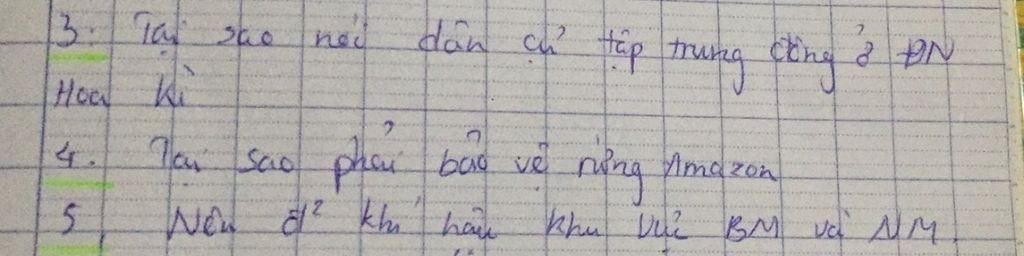 3. Tại sao nói dân cư tập trung đông ở ĐN
Hoa Kì
4. Tại sao phải bảo vệ rừng Amazon
5 Nêu đ² khí hậu khu vực BM và NM